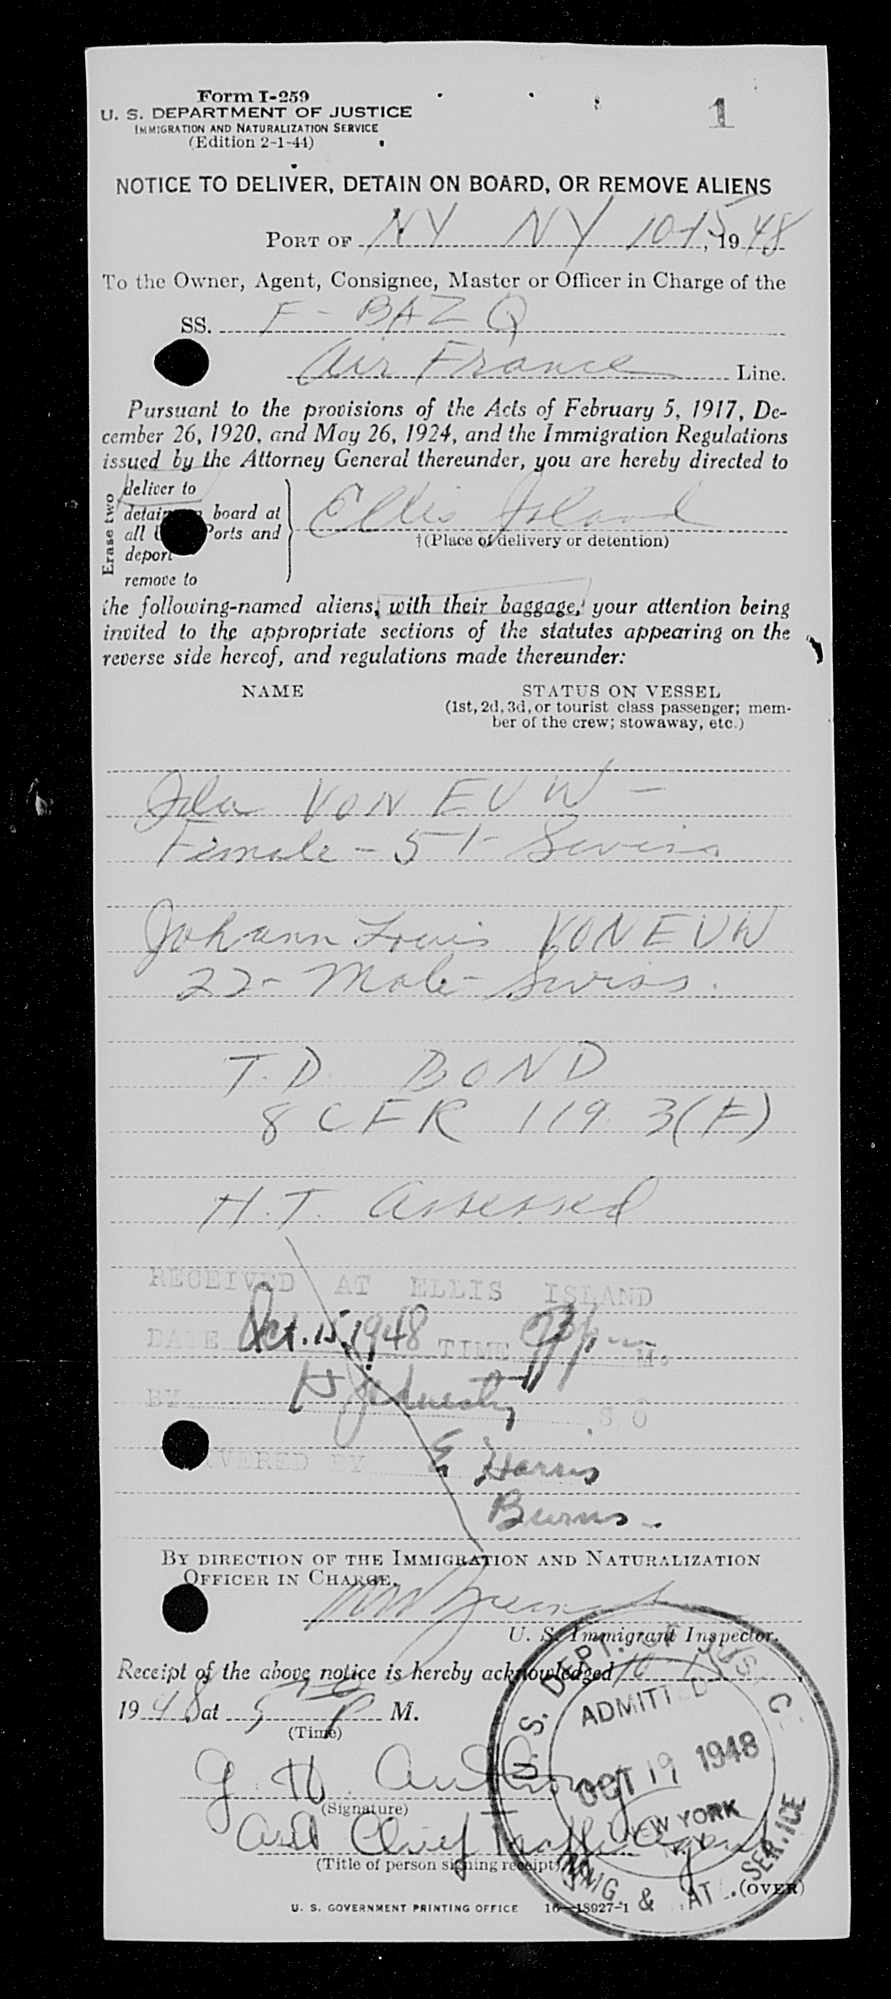 Form I-259
U. S. DEPARTMENT OF JUSTICE
IMMIGRATION AND NATURALIZATION SERVICE
(Edition 2-1-44)
1
NOTICE TO DELIVER, DETAIN ON BOARD, OR REMOVE ALIENS
PORT OF NY NY 10-15, 1948
To the Owner, Agent, Consignee, Master or Officer in Charge of the
SS. F-BAZQ
Air France Line.
Pursuant to the provisions of the Acts of February 5, 1917, De-
cember 26, 1920, and May 26, 1924, and the Immigration Regulations
issued by the Attorney General thereunder, you are hereby directed to
Erase two
deliver to
detain board at
all Ports and
deport
remove to
Ellis Island
†(Place of delivery or detention)
the following-named aliens, with their baggage, your attention being
invited to the appropriate sections of the statutes appearing on the
reverse side hereof, and regulations made thereunder:
NAME STATUS ON VESSEL
(1st, 2d, 3d, or tourist class passenger; mem-
ber of the crew; stowaway, etc.)
Ida VON EUW -
Female - 51 - Swiss
Johann Louis VON EUW
22 - Male - Swiss.
T.D. BOND
8 CFR 119.3(F)
H.T. assessed
RECEIVED AT ELLIS ISLAND
DATE Oct. 15, 1948 TIME M.
BY S O
VERED BY E Harris
Burns
BY DIRECTION OF THE IMMIGRATION AND NATURALIZATION
OFFICER IN CHARGE.
U. S. Immigrant Inspector.
Receipt of the above notice is hereby acknowledged 10
1948 at 5 P M.
(Time)
G. H. Anthony
(Signature)
Asst Chief Traffic Agent
(Title of person signing receipt)
(OVER)
U. S. GOVERNMENT PRINTING OFFICE 16—18927-1
U. S. DEPT. OF JUSTICE
ADMITTED
OCT 19 1948
NEW YORK
N.Y.
IMMG. & NAT. SERVICE